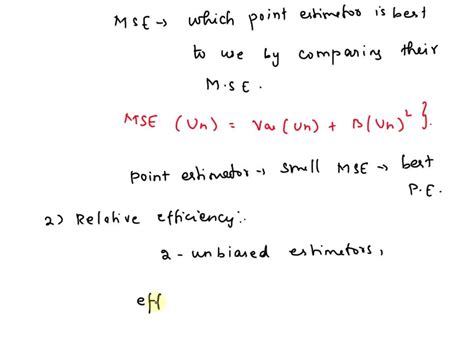 MSE → which point estimator is best
to we by comparing their
M.S E.
MSE (Un) = Var (Un) + B(Un)² }.
point estimator → small MSE → best
P.E.
2) Relative efficiency:.
2 - unbiased estimetors,
eff